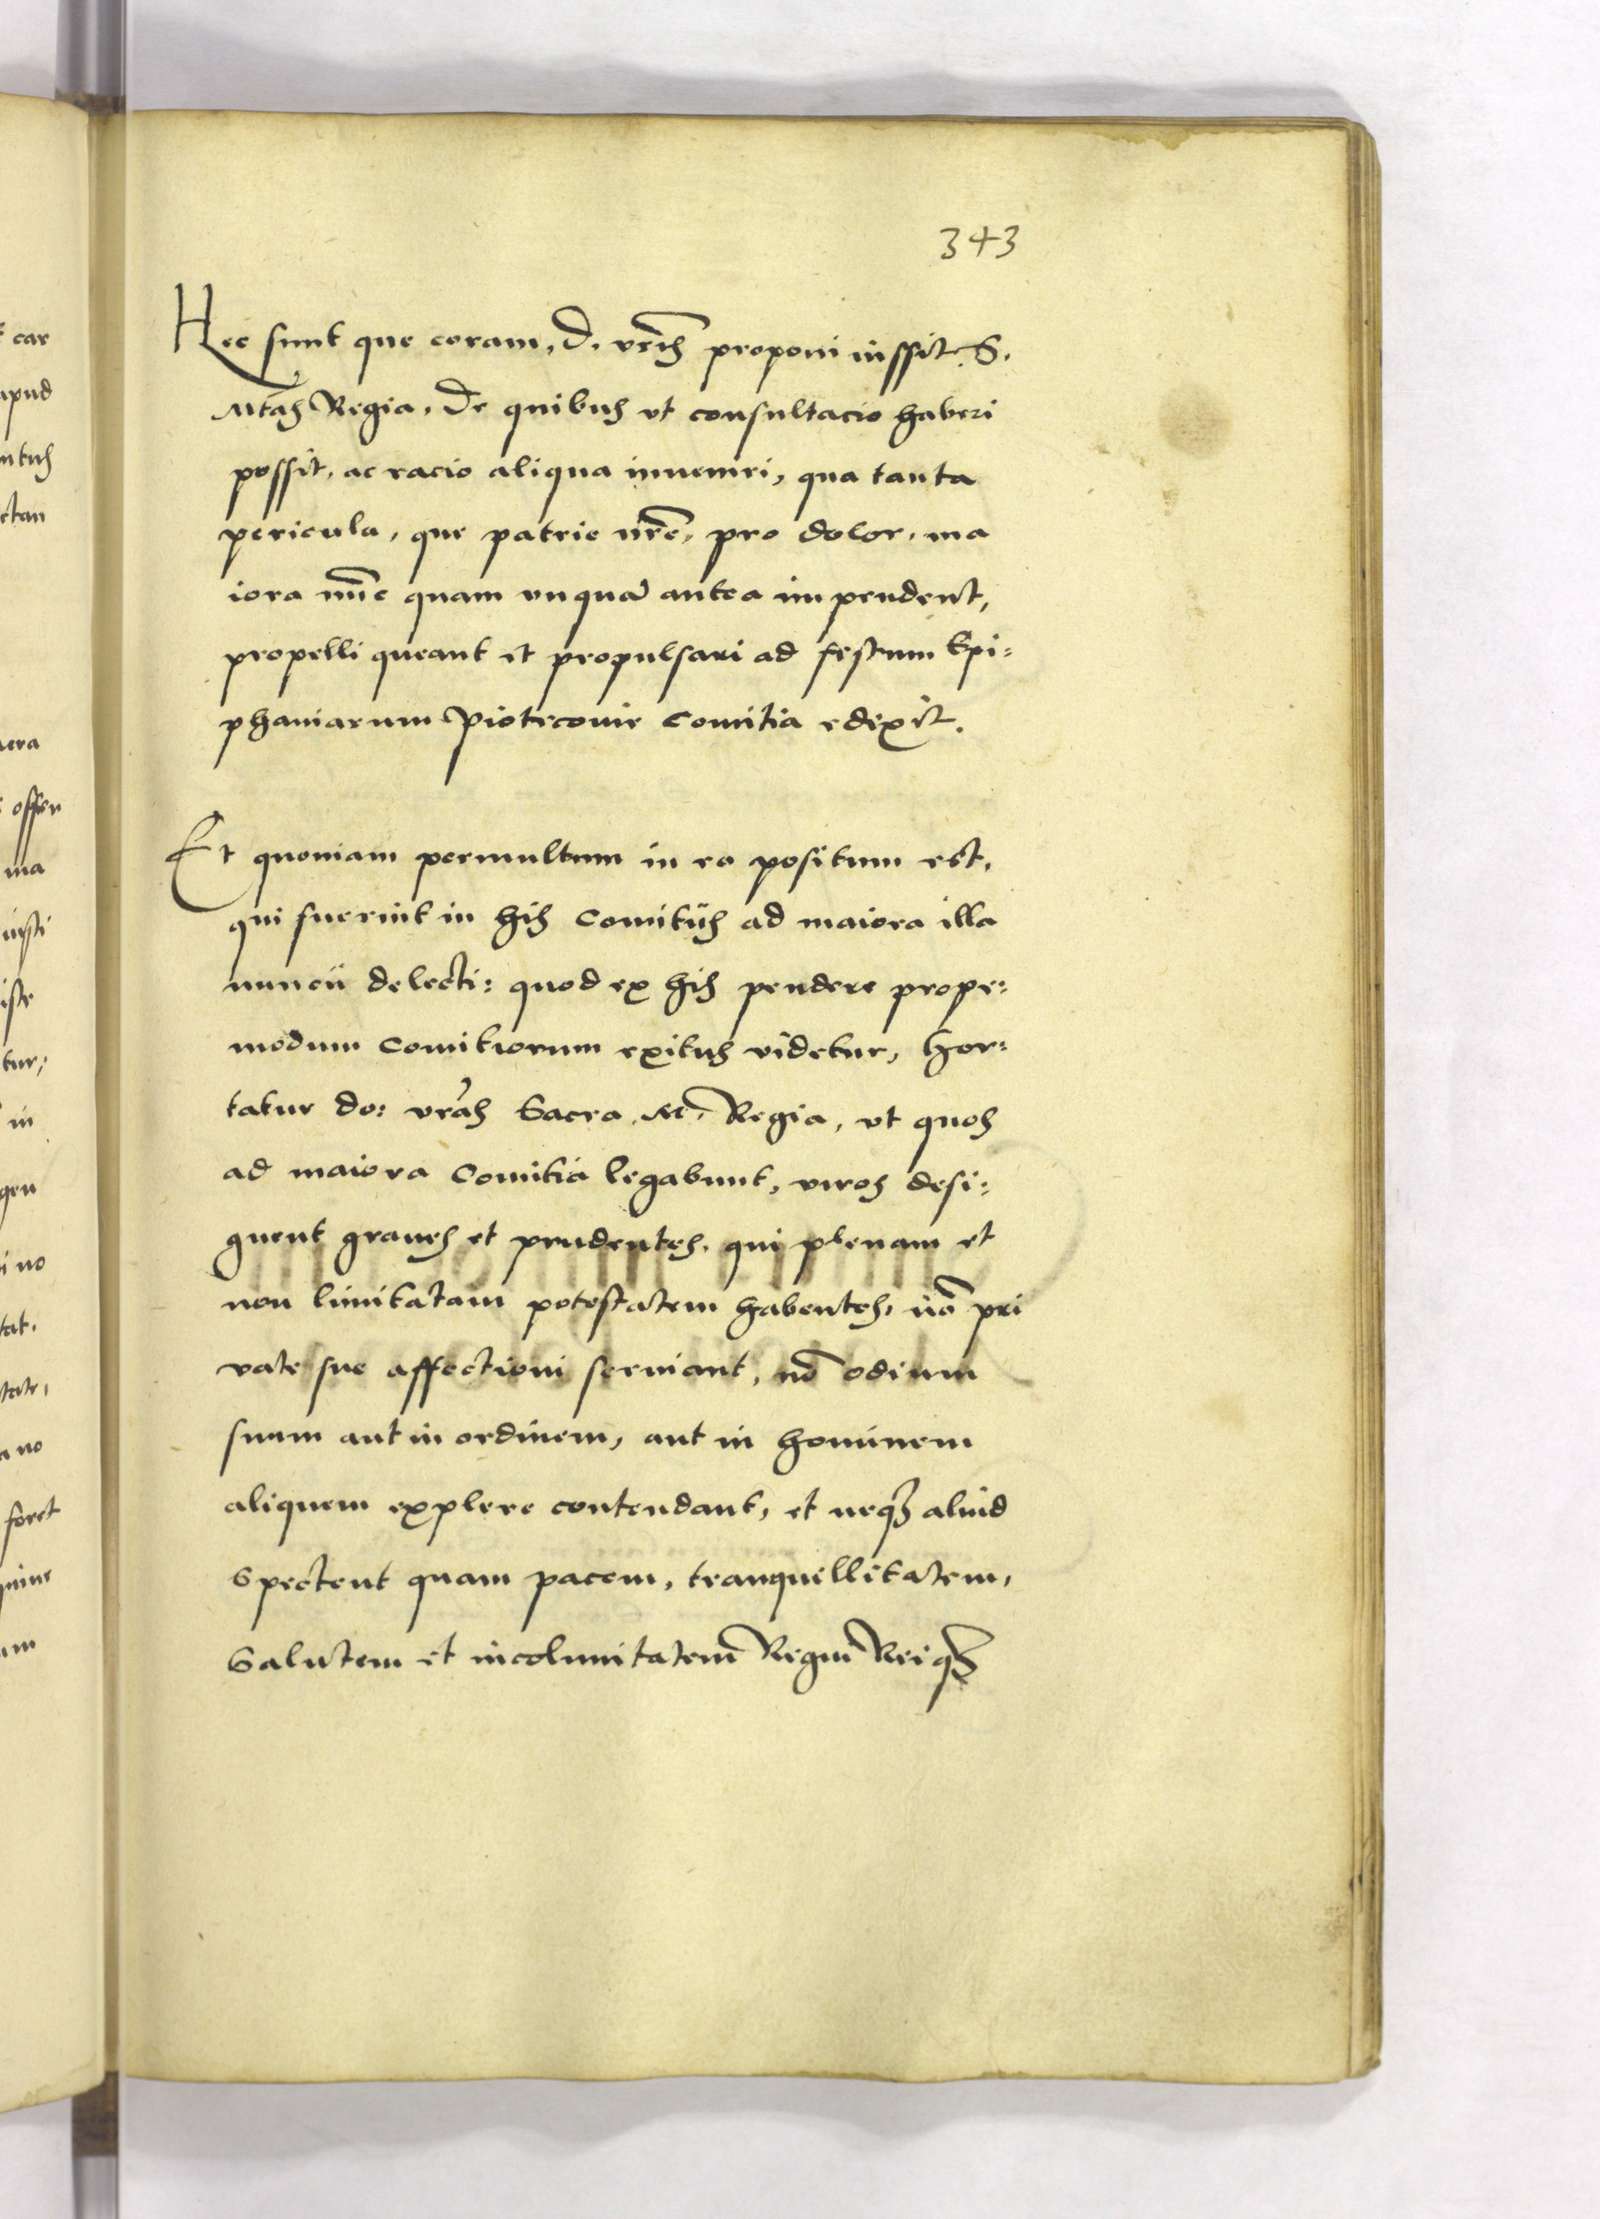 343
Hec sunt que coram, D. vr̃is proponi iussit S.
Mtas Regia, De quibus vt consultacio haberi
possit, ac racio aliqua inueniri, qua tanta
pericula, que patrie nr̃e, pro dolor, ma
iora nũc quam vnquã antea impendent,
propelli queant et propulsari ad festum Epi:
phaniarum Piotrcouie Comitia edixit.
Et quoniam permultum in eo positum est,
qui fuerint in his Comitijs ad maiora illa
nuncij delecti: quod ex his pendere prope:
modum Comitiorum exitus videtur, hor:
tatur do: vr̃as Sacra Mt. Regia, vt quos
ad maiora Comitia legabunt, viros desi:
gnent graues et prudentes, qui plenam et
non limitatam potestatem habentes, nõ pri
vate sue affectioni seruiant, nõ odium
suum aut in ordinem, aut in hominem
aliquem explere contendant, et neqз aliud
Spectent quam pacem, tranquillitatem,
Salutem et incolumitatem Regni Reiqз
car
apud
ctan
offen
ma
iste
tur,
in
gen
no
tat.
no
foret